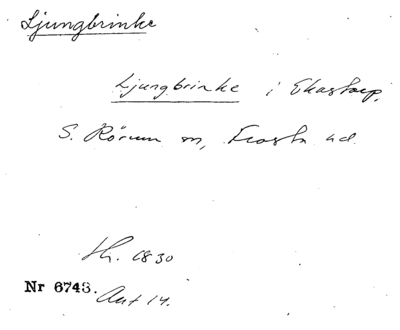 Ljungbrinke
Ljungbrinke i Ekastorp,
S. Rörum sn, Frosta hd.
th. 1830
Nr 6743. Ant 14.